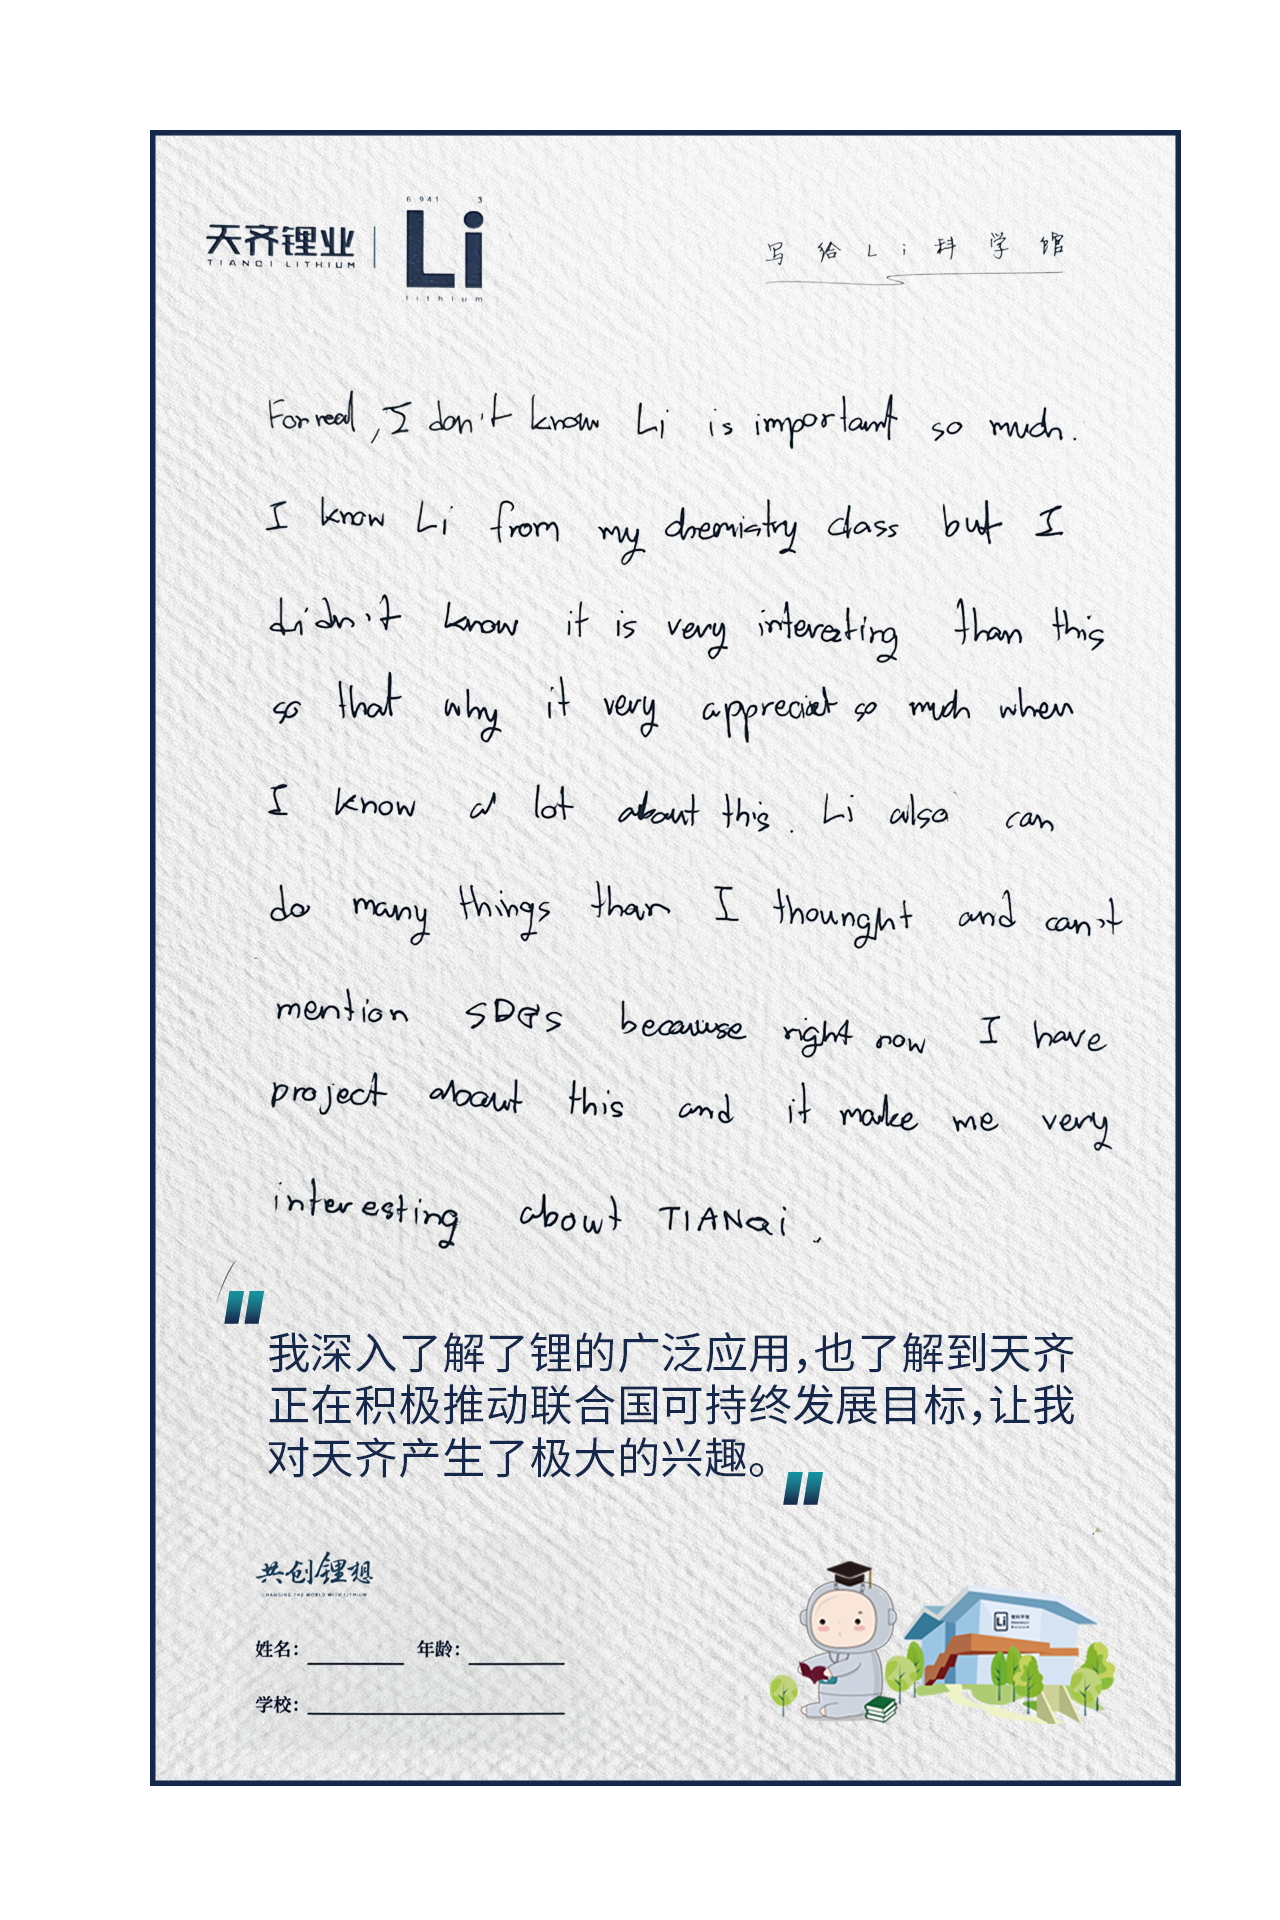 天齐锂业
TIANQI LITHIUM
6.941 3
Li
lithium
写给Li科学馆
For real, I don't know Li is important so much.
I know Li from my chemistry class but I
didn't know it is very interesting than this
so that why it very appreciat so much when
I know a lot about this. Li also can
do many things than I thounght and can't
mention SDGs because right now I have
project about this and it make me very
interesting about TIANQi.
我深入了解了锂的广泛应用,也了解到天齐
正在积极推动联合国可持终发展目标,让我
对天齐产生了极大的兴趣。
共创锂想
CHANGING THE WORLD WITH LITHIUM
姓名: 年龄:
学校:
Li